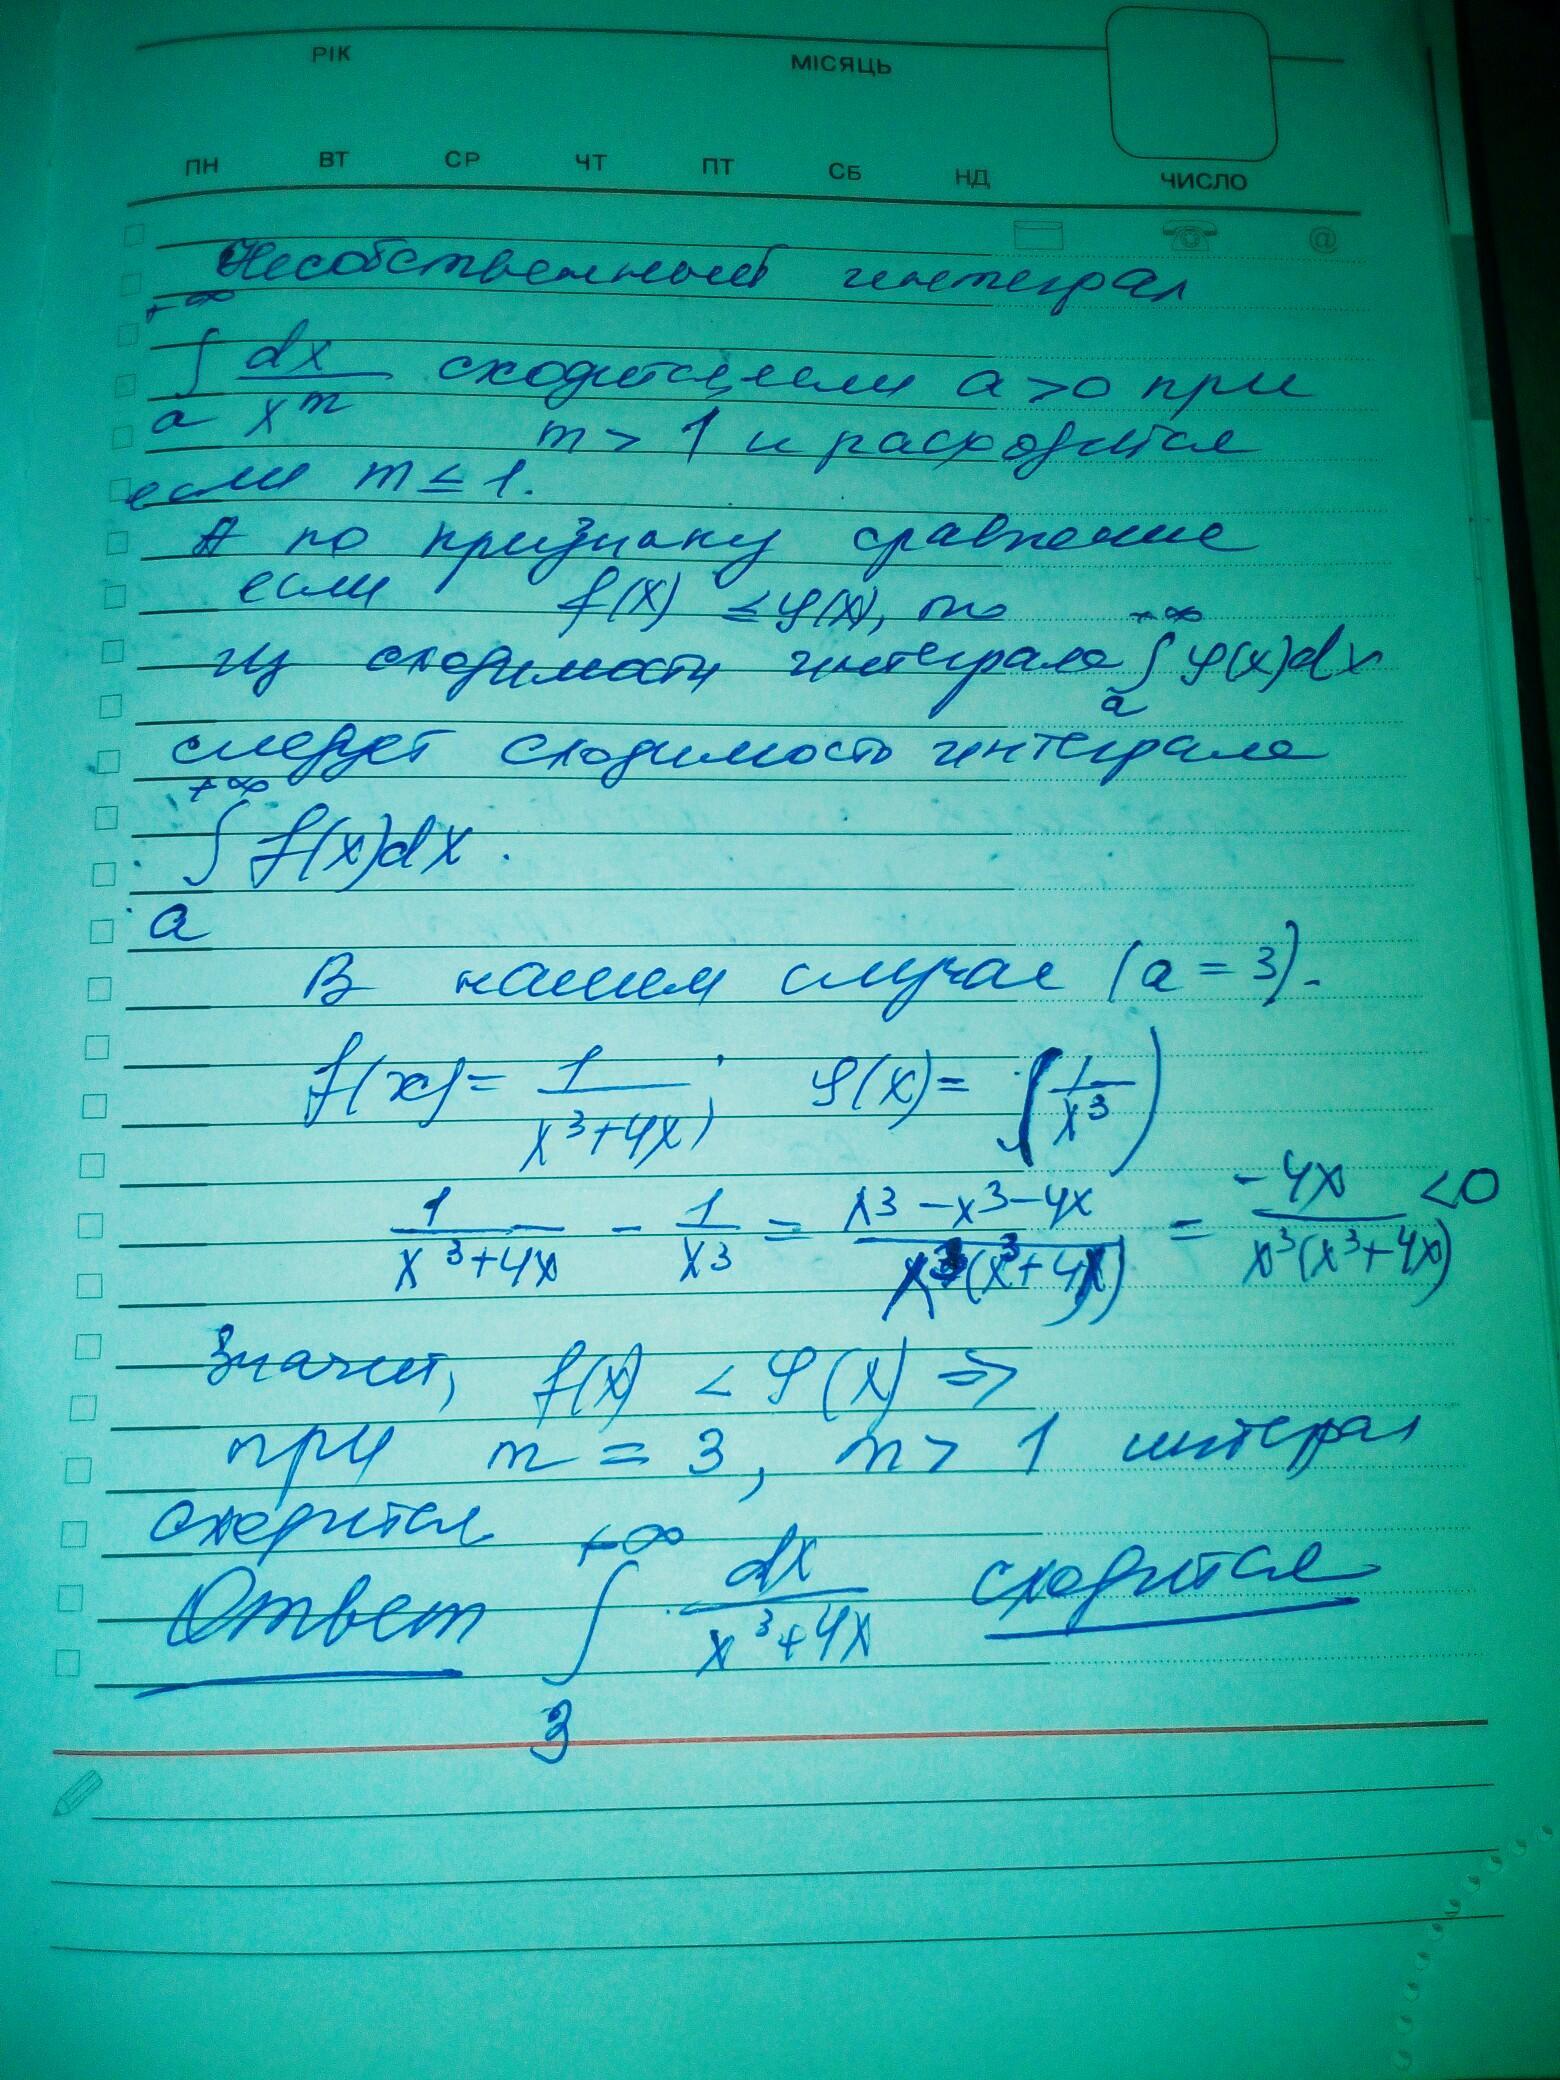 РІК МІСЯЦЬ
ПН ВТ СР ЧТ ПТ СБ НД ЧИСЛО
@
Несобственный интеграл
+∞
∫ dx/x^m сходится, если a > 0 при
a
m > 1 и расходится
если m ≤ 1.
А по признаку сравнение
если f(x) ≤ φ(x), то
из сходимости интеграла ∫_a^{+∞} φ(x)dx
следует сходимость интеграла
+∞
∫ f(x)dx.
a
В нашем случае (a = 3).
f(x) = 1/(x³+4x); φ(x) = (1/x³)
1/(x³+4x) - 1/x³ = (x³-x³-4x)/(x³(x³+4x)) = -4x/(x³(x³+4x)) < 0
Значит, f(x) < φ(x) ⇒
при m = 3, m > 1 интеграл
сходится
Ответ ∫_3^{+∞} dx/(x³+4x) сходится